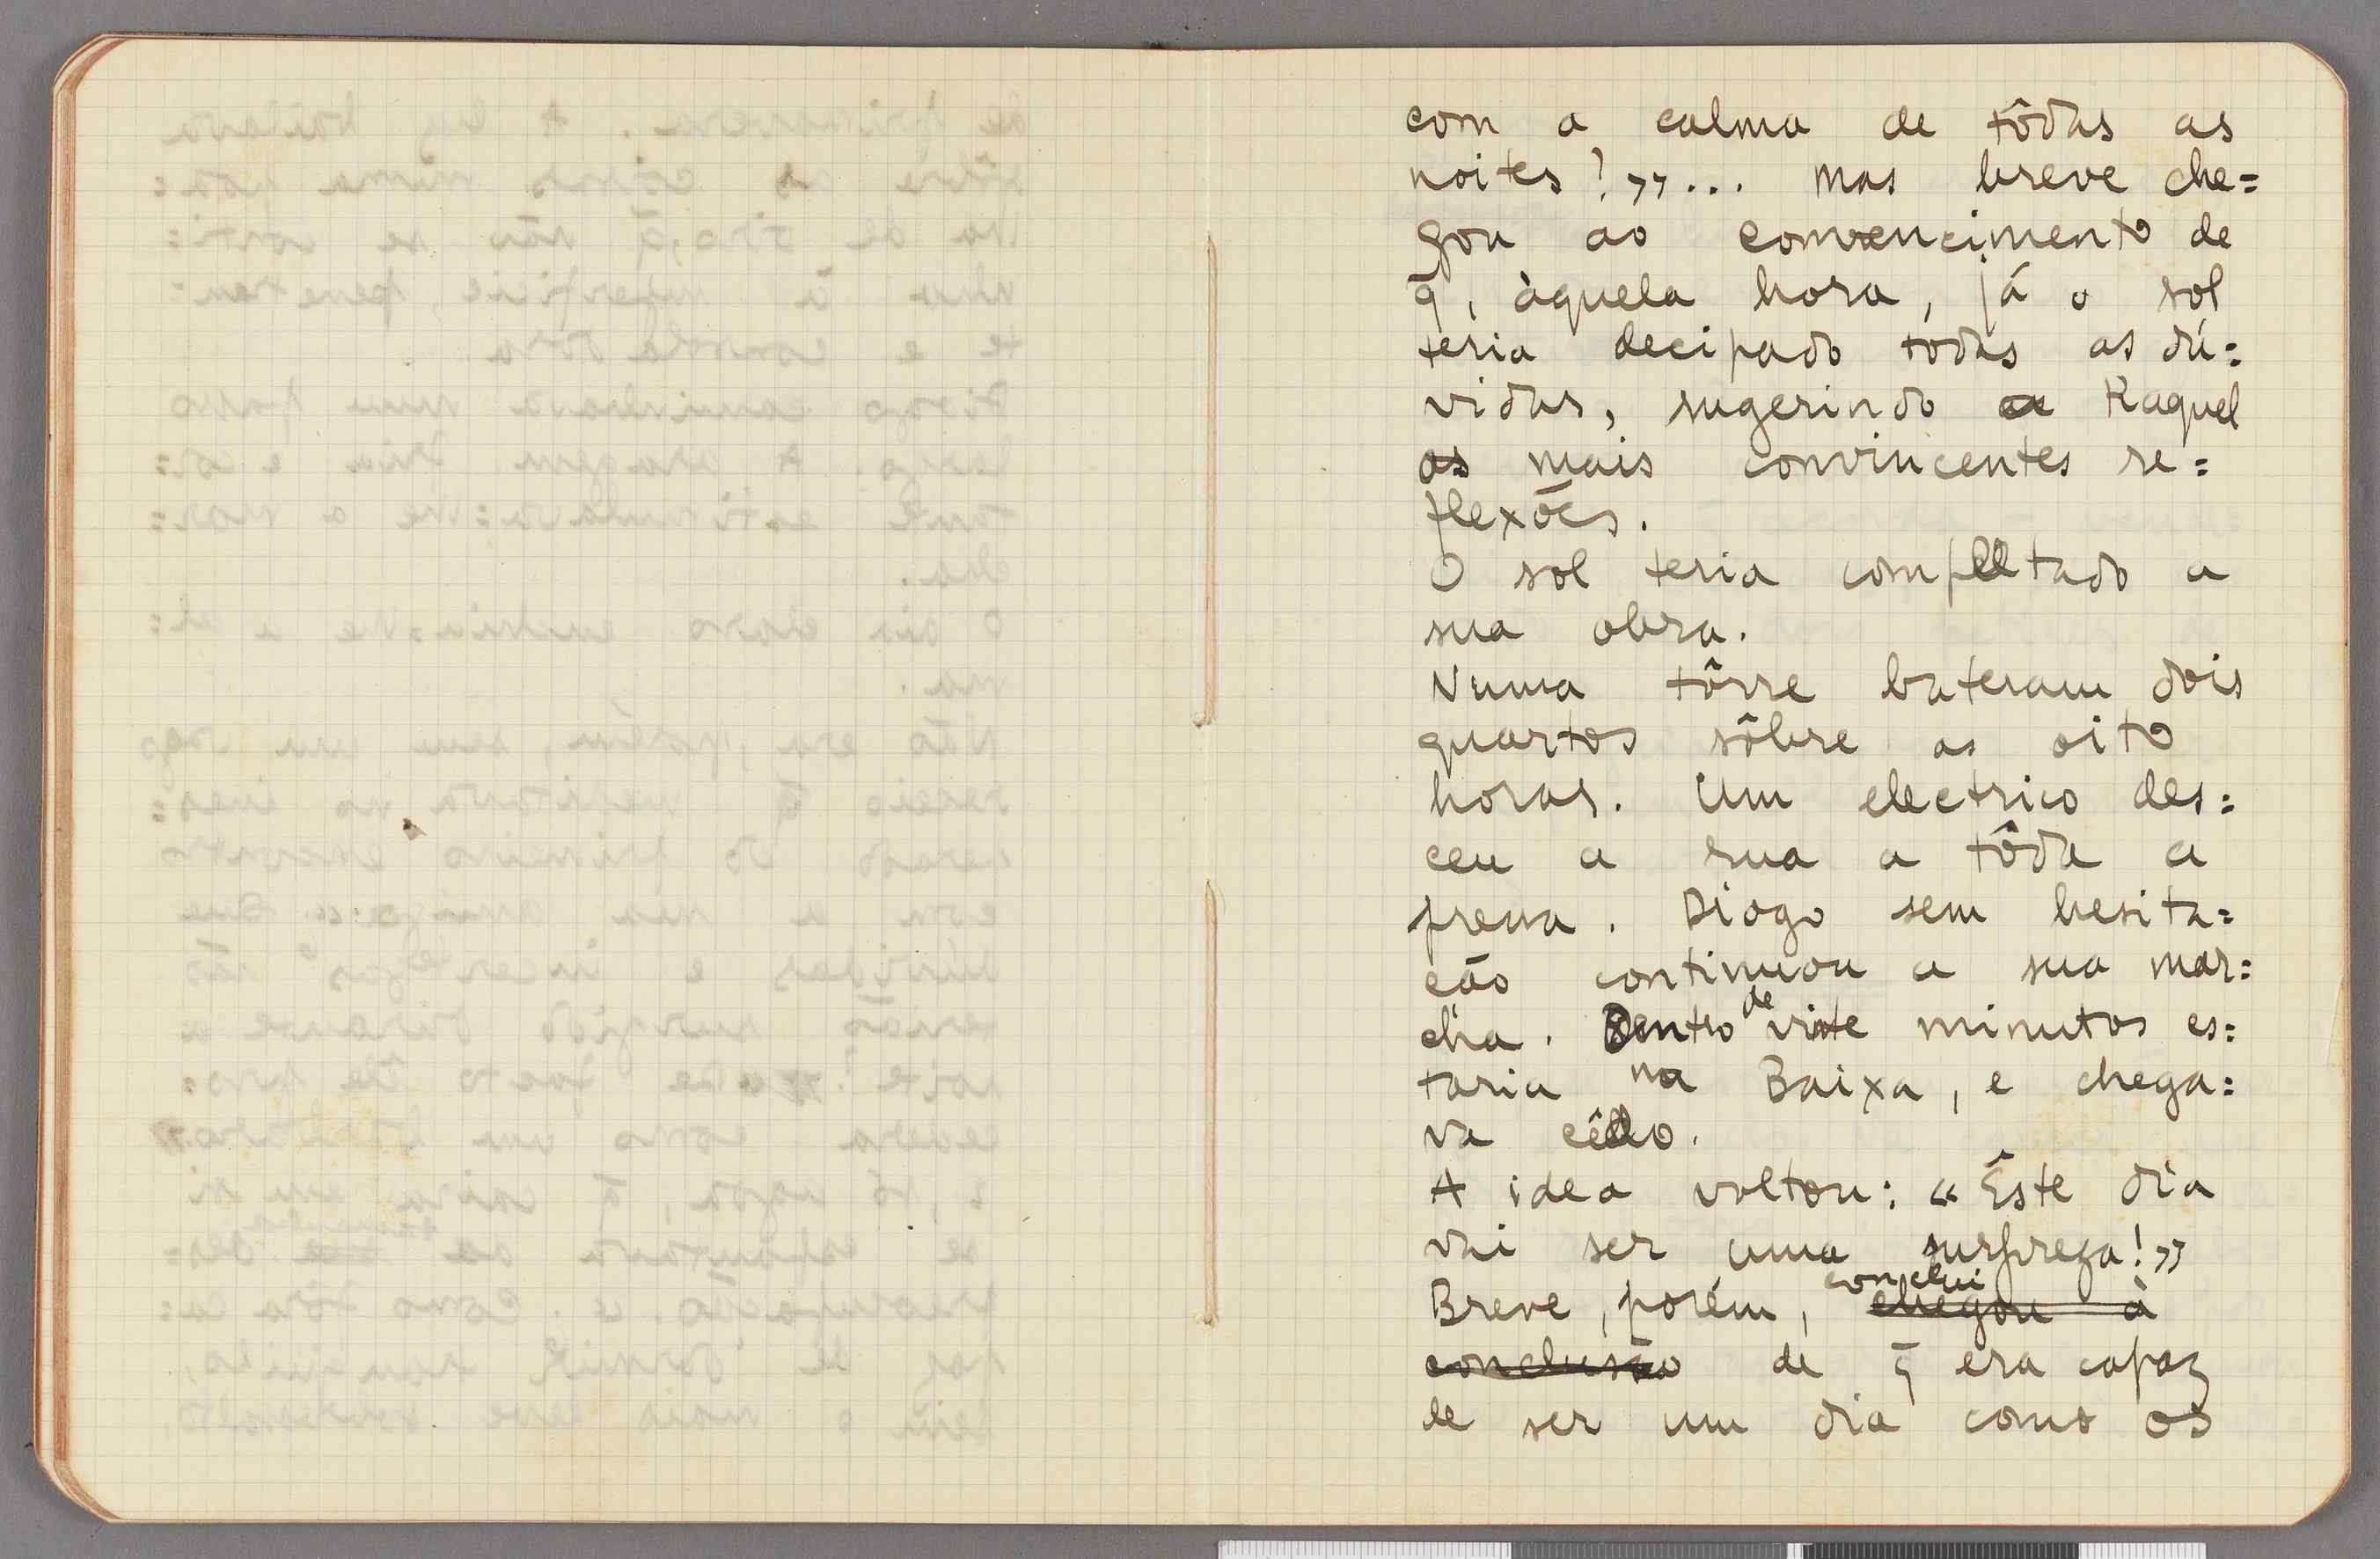 com a calma de tôdas as
noites?»... Mas breve che=
gou ao convencimento de
q̄, àquela hora, já o sol
teria decipado todas as dú=
vidas, sugerindo a Raquel
as mais convincentes re=
flexões.
O sol teria completado a
sua obra.
Numa tôrre bateram dois
quartos sôbre as oito
horas. Um electrico des=
ceu a rua a tôda a
pressa. Diogo sem hesita=
ção continuou a sua mar=
cha. Dentro de vinte minutos es=
taria na Baixa, e chega=
va cêdo.
A idea voltou: «Êste dia
vai ser uma surpreza!»
conclui
Breve, porém, chegou à
conclusão de q̄ era capaz
de ser um dia como os